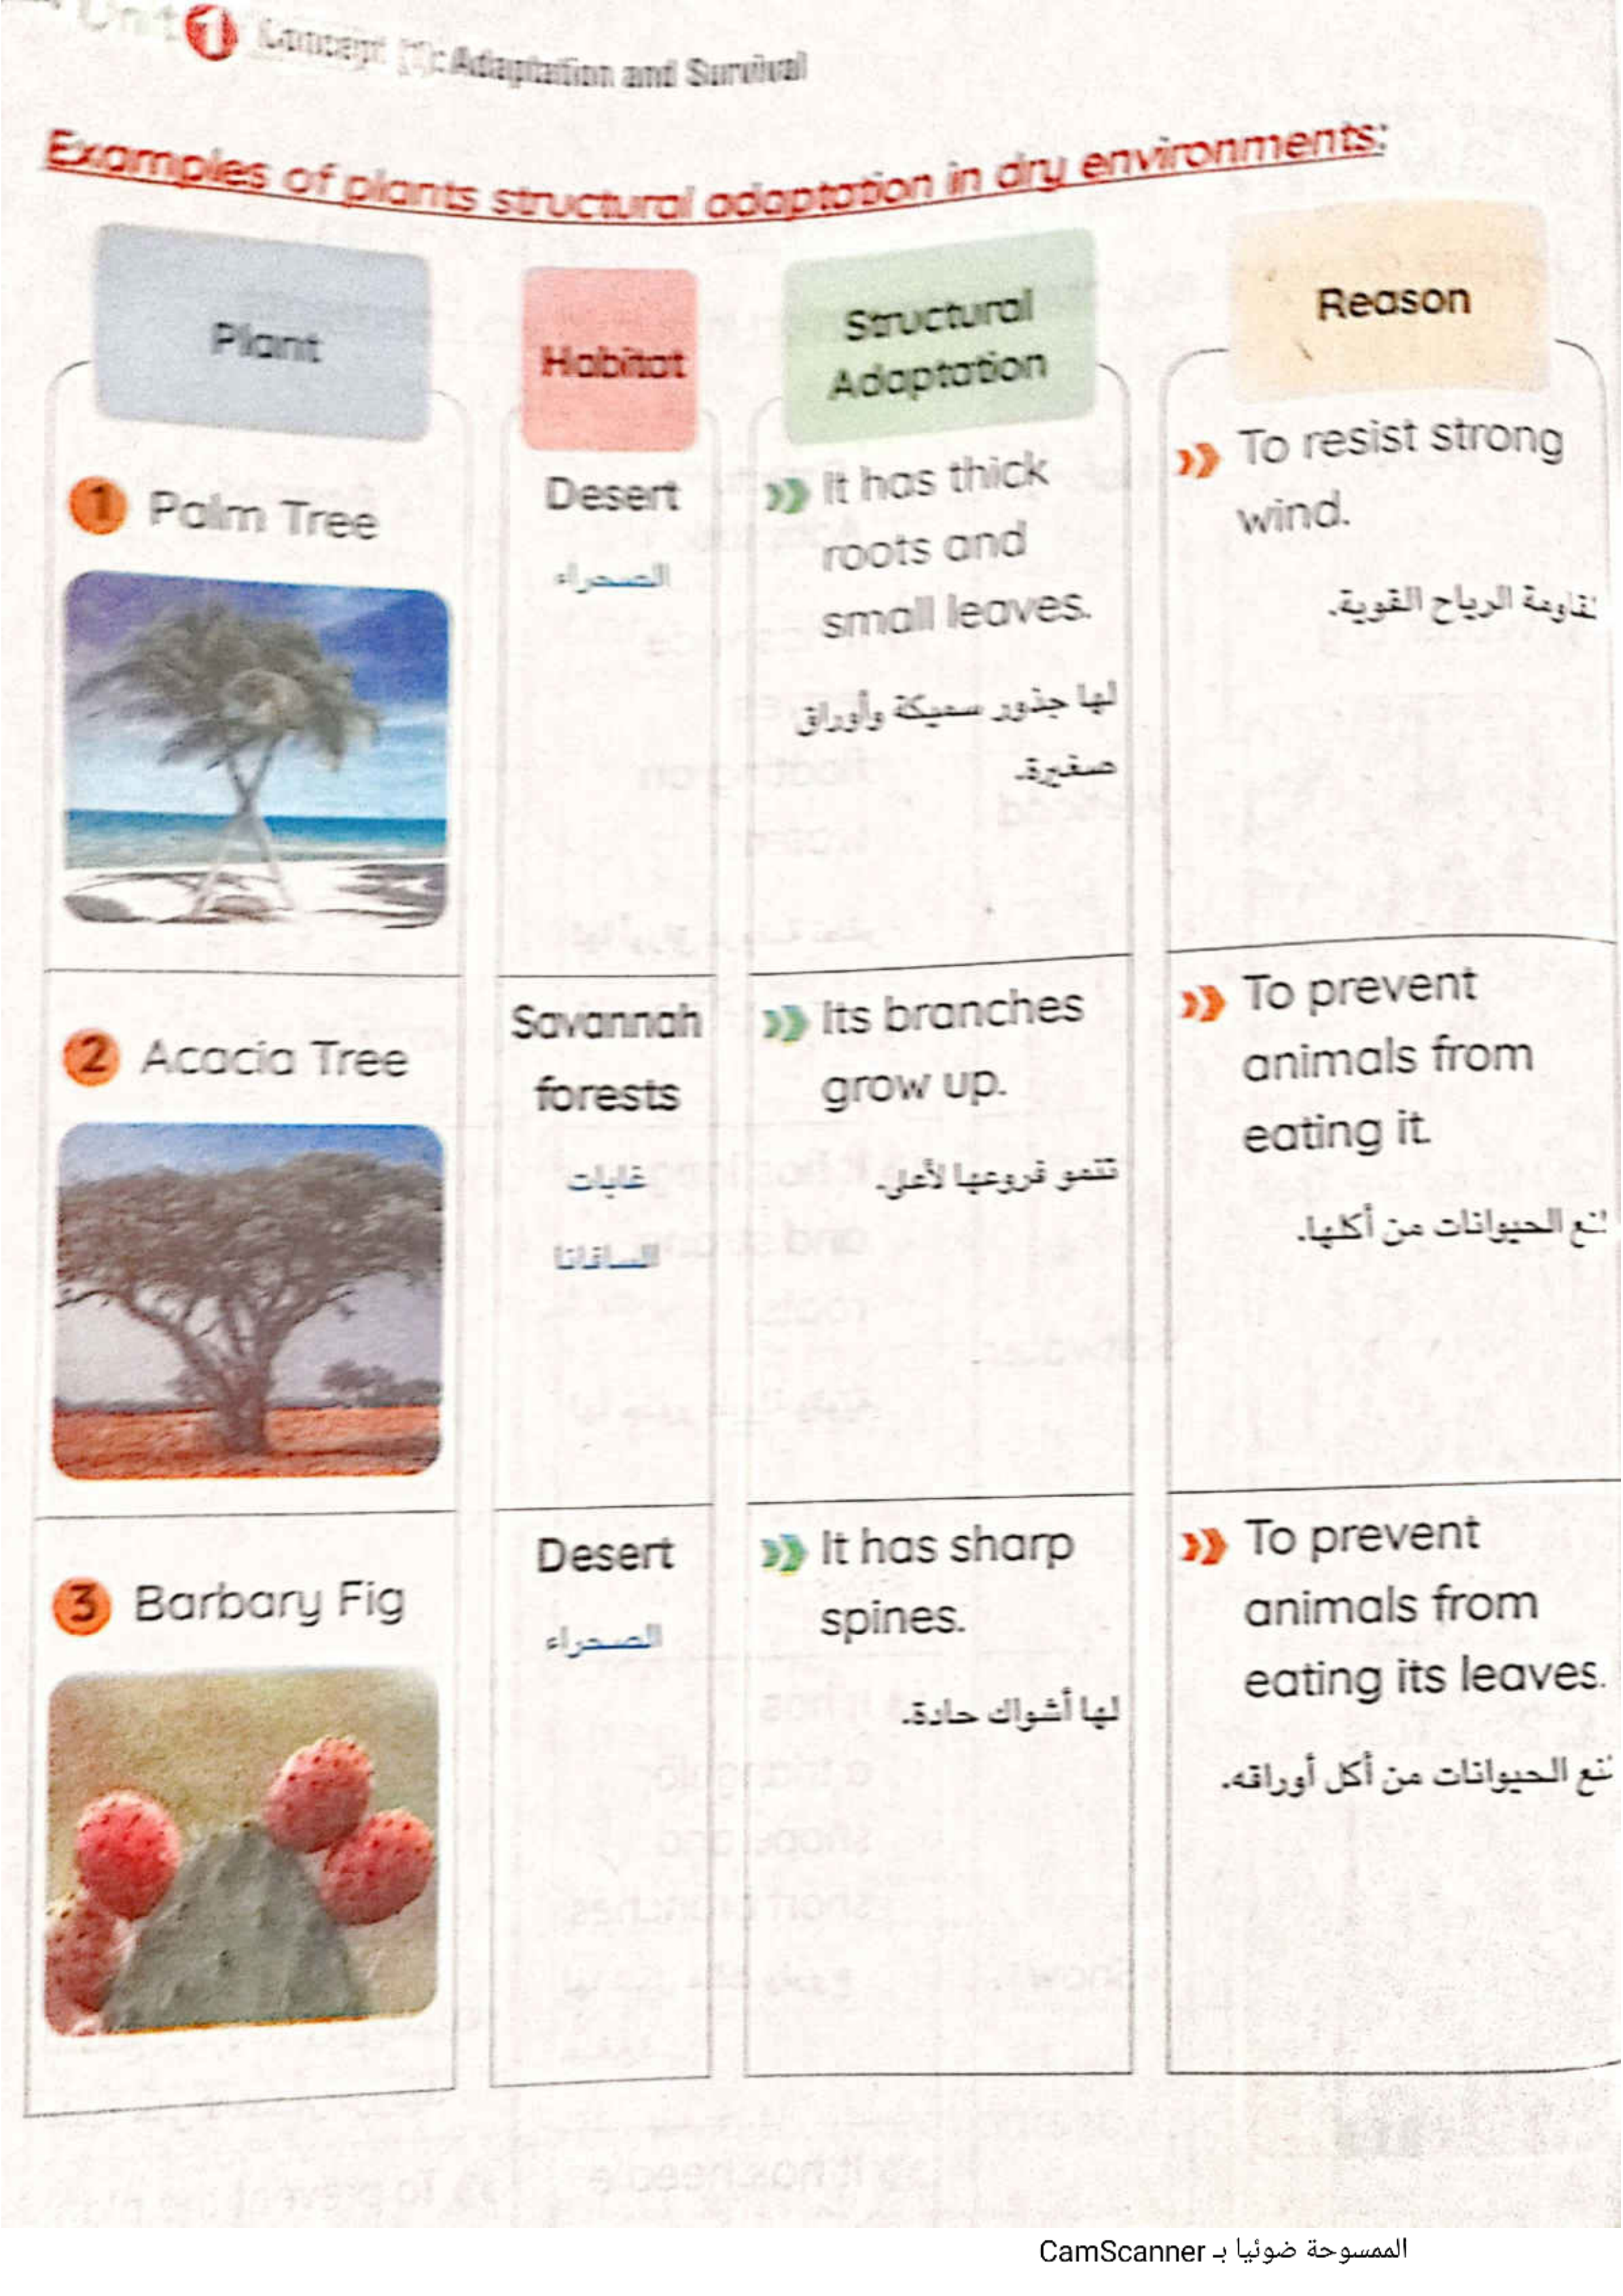 Unit 1 Concept (1): Adaptation and Survival
Examples of plants structural adaptation in dry environments:
Plant
Habitat
Structural
Adaptation
Reason
1 Palm Tree
Desert
الصحراء
It has thick
roots and
small leaves.
لها جذور سميكة وأوراق
صغيرة.
To resist strong
wind.
الرياح القوية.
2 Acacia Tree
Savannah
forests
غابات
السافانا
Its branches
grow up.
تنمو فروعها لأعلى.
To prevent
animals from
eating it.
الحيوانات من أكلها.
3 Barbary Fig
Desert
الصحراء
It has sharp
spines.
لها أشواك حادة.
To prevent
animals from
eating its leaves.
الحيوانات من أكل أوراقه.
الممسوحة ضوئيا بـ CamScanner